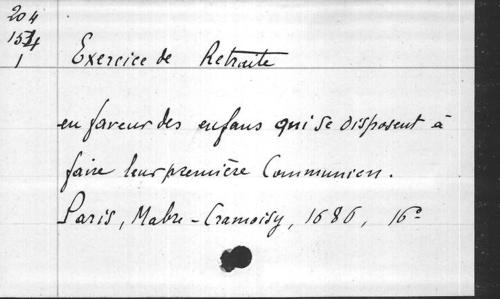 204
154
1
Exercice de Retraite
en faveur des enfans qui se disposent à
faire leur première Communion.
Paris, Mabre-Cramoisy, 1686, 16º